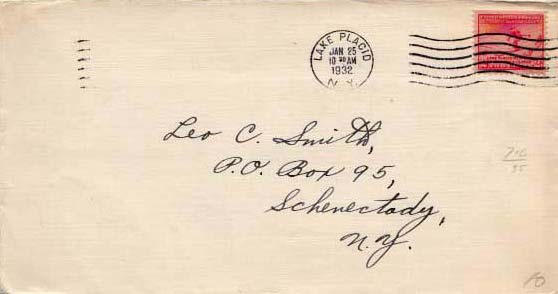 LAKE PLACID
JAN 25
10 30 AM
1932
N.Y.
Leo C. Smith,
P.O. Box 95,
Schenectady,
N.Y.